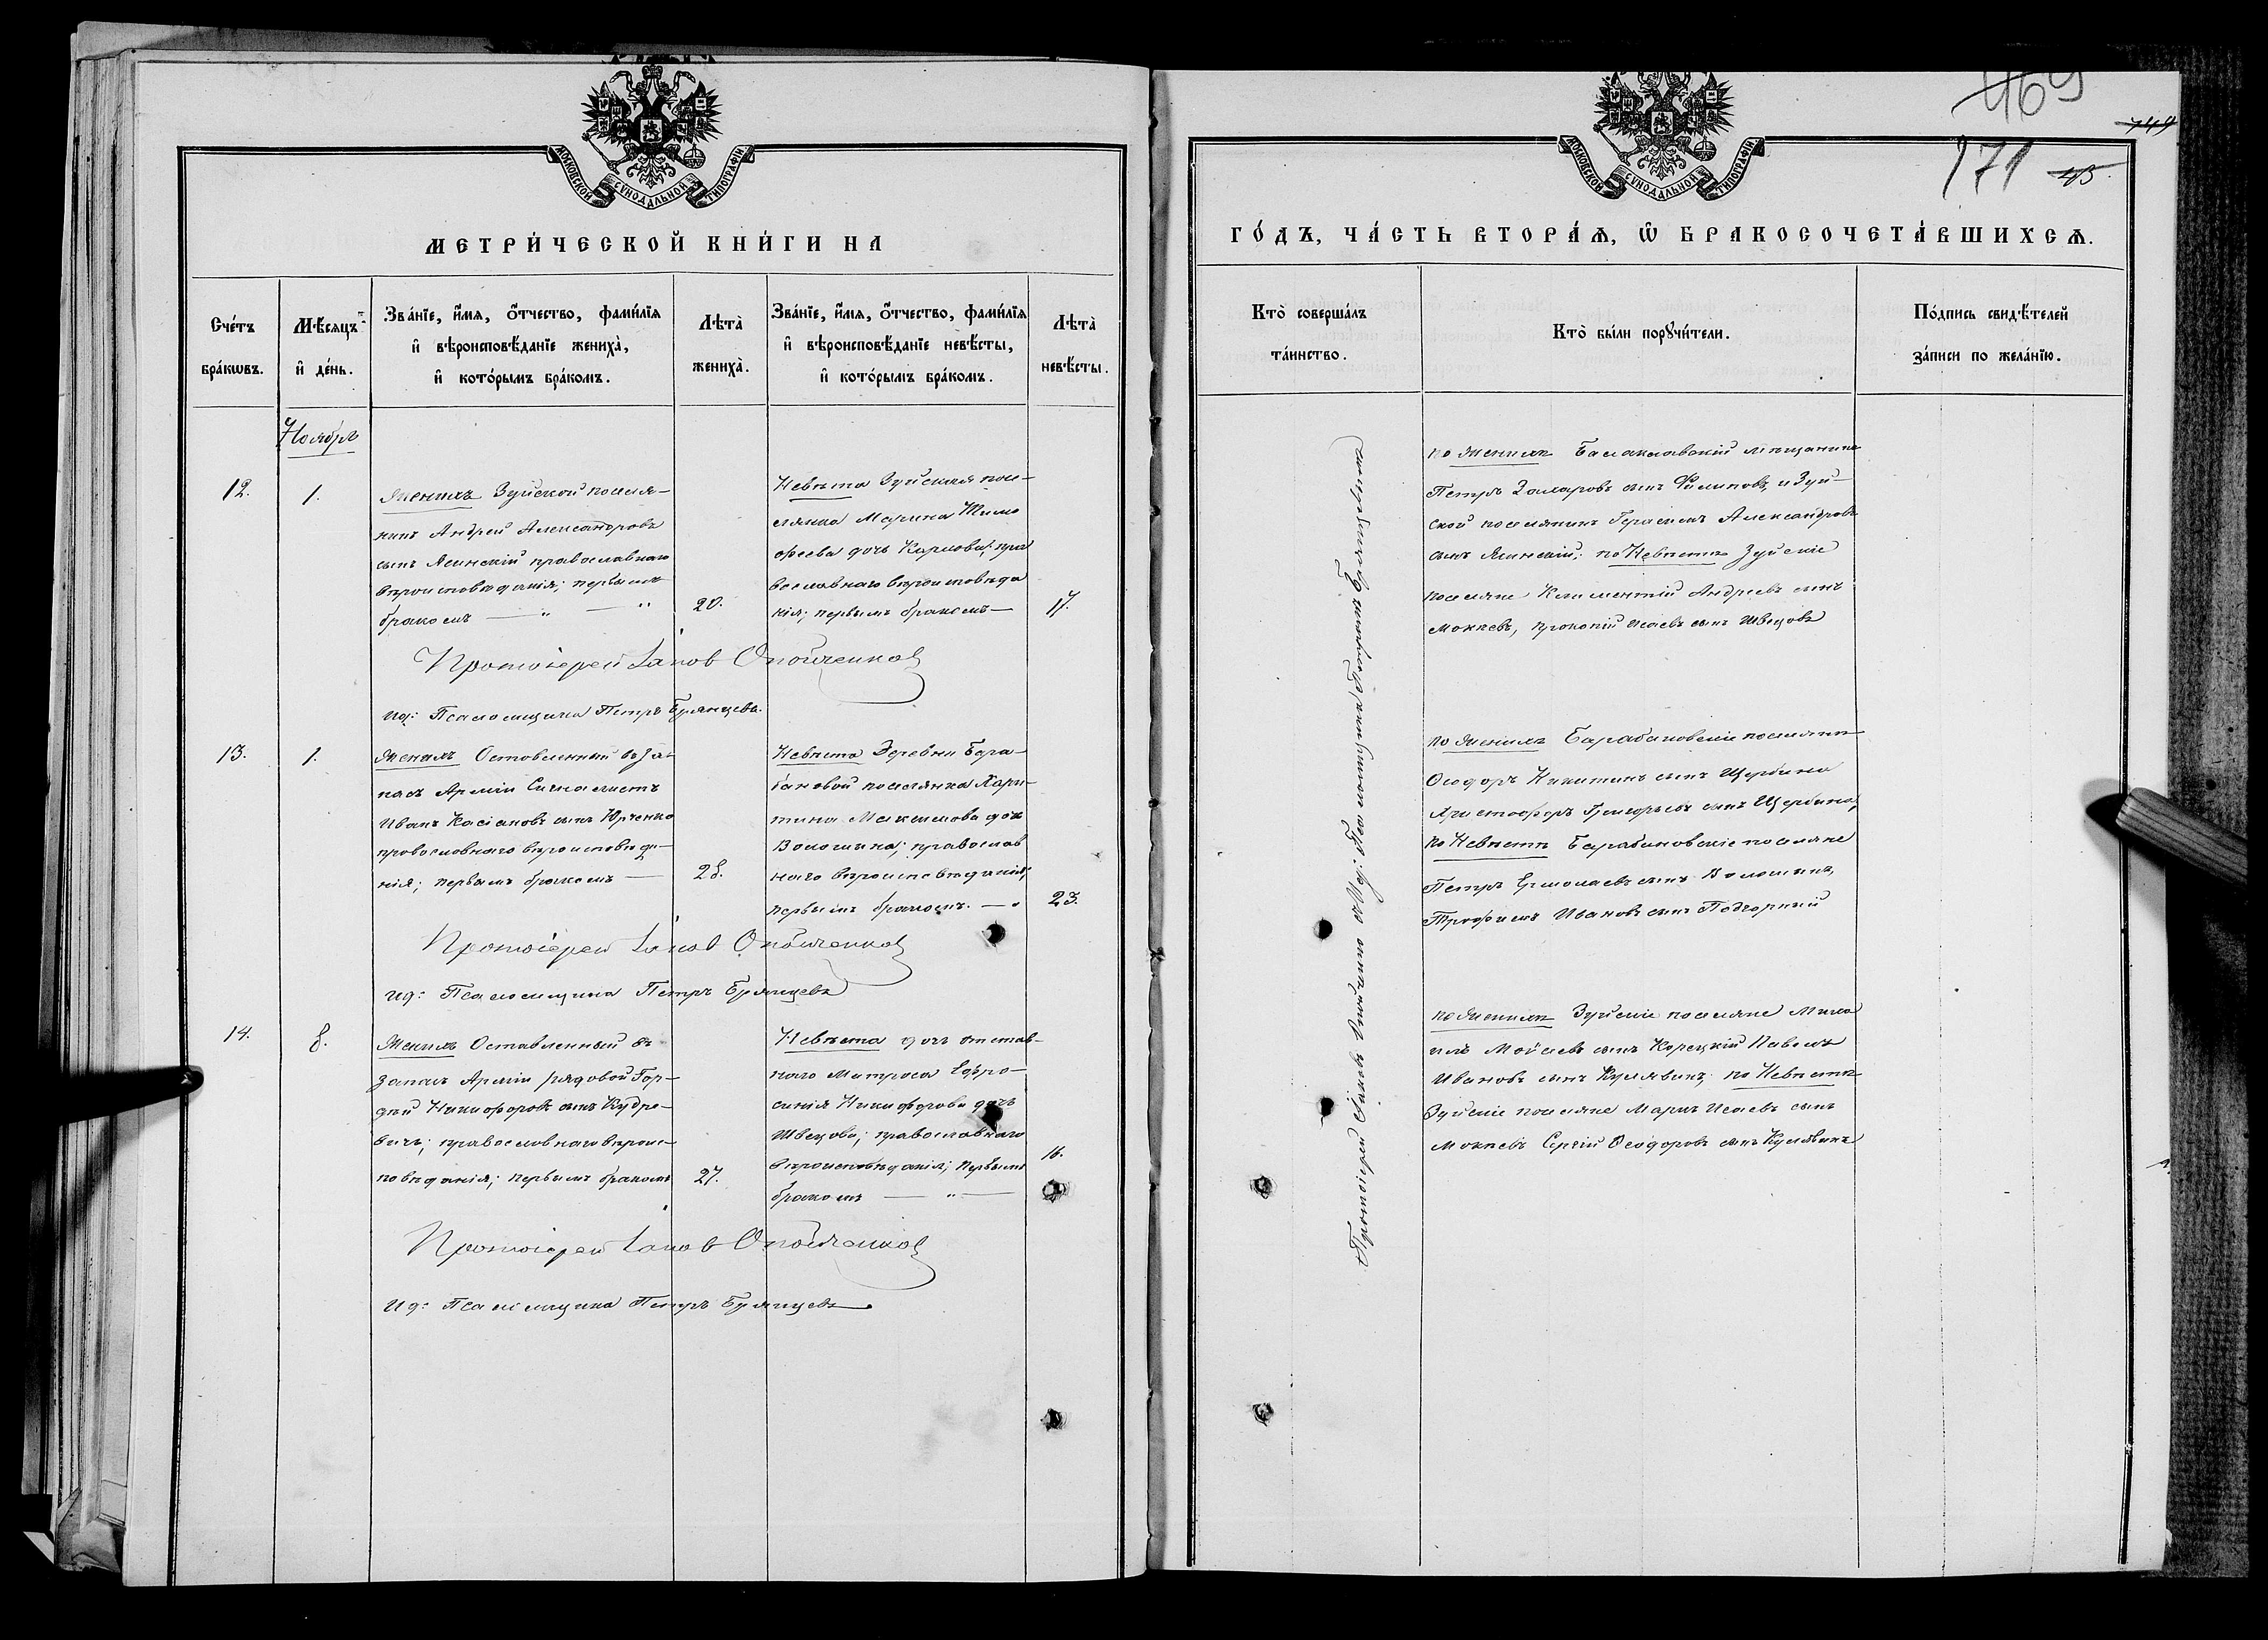 МОСКОВСКОЙ СѴНОДАЛЬНОЙ ТИПОГРАФІИ
МЕТРИ́ЧЕСКОЙ КНИ́ГИ НА
Сче́тъ бра́кѡвъ.
Мѣ́сяцъ и҆ де́нь.
Зва́нїе, и҆́мя, ѻ҆́тчество, фами́лїя
и҆ вѣроисповѣ́данїе жениха̀,
и҆ кото́рымъ бра́комъ.
Лѣта̀ жениха̀.
Зва́нїе, и҆́мя, ѻ҆́тчество, фами́лїя
и҆ вѣроисповѣ́данїе невѣ́сты,
и҆ кото́рымъ бра́комъ.
Лѣта̀ невѣ́сты.
Ноябрь
12.
1.
Женихъ Зуйской поселя-
нинъ Андрей Александровъ
сынъ Ясинскій православнаго
вѣроисповѣданія; первымъ
бракомъ — „ — „
20.
Невѣста Зуйская посе-
лянка Марина Тимо
феева дочь Карпова; пра
вославнаго вѣроисповѣда
нія; первымъ бракомъ —
17.
Протоіерей Іаковъ
Ид: Псаломщика Петръ Брянцевъ.
13.
1.
Женихъ Оставленный въ за-
пасъ Арміи Сигналистъ
Иванъ Касіановъ сынъ Юрченко
православнаго вѣроисповѣда-
нія; первымъ бракомъ —
28.
Невѣста Деревни Бара-
бановой поселянка Хари-
тина Максимова дочь
Волошина; православ
наго вѣроисповѣданія;
первымъ бракомъ. —
23.
Протоіерей Іаковъ
ид: Псаломщика Петръ Брянцевъ
14.
8.
Женихъ Оставленный въ
запасъ Арміи рядовой Гор-
дѣй Никифоровъ сынъ Кудре-
вичъ; православнаго вѣроис-
повѣданія; первымъ бракомъ
27.
Невѣста дочь отстав-
наго Матроса Евфро-
синія Никифорова дочь
Швецова; православнаго
вѣроисповѣданія; первымъ
бракомъ — „ —
16.
Протоіерей Іаковъ
Ид: Псаломщика Петръ Брянцевъ
469
749
171
МОСКОВСКОЙ СѴНОДАЛЬНОЙ ТИПОГРАФІИ
ГО́ДЪ, ЧА́СТЬ ВТОРА́Ѧ, Ѽ БРАКОСОЧЕТА́ВШИХСѦ.
Кто̀ соверша́лъ
та́инство.
Кто̀ бы́ли порꙋчи́тели.
По́дпись свидѣ́телей
за́писи по жела́нїю.
Протоіерей Іаковъ
Ид: Псаломщика Петръ Брянцевъ
по Женихѣ Балаклавскій мѣщанинъ
Петръ Захаровъ сынъ Филиповъ, и Зуй-
ской поселянинъ Герасимъ Александровъ
сынъ Ясинскій; по Невѣстѣ Зуйскіе
поселяне Климентій Андреевъ сынъ
Мокѣевъ, Прокопій Исаевъ сынъ Швецовъ
по Женихѣ Барабановскіе поселяне
Ѳеодоръ Никитинъ сынъ Щербина
Христофоръ Григорьевъ сынъ Щербина,
по Невѣстѣ Барабановскіе поселяне
Петръ Ермолаевъ сынъ Волошинъ,
Трофимъ Ивановъ сынъ Подгорный
по Женихѣ Зуйскіе поселяне Миха
илъ Мойсеевъ сынъ Корецкій Павелъ
Ивановъ сынъ Кулявинъ; по Невѣстѣ
Зуйскіе поселяне Маркъ Исаевъ сынъ
Мокѣевъ Сергій Ѳеодоровъ сынъ Кулявинъ